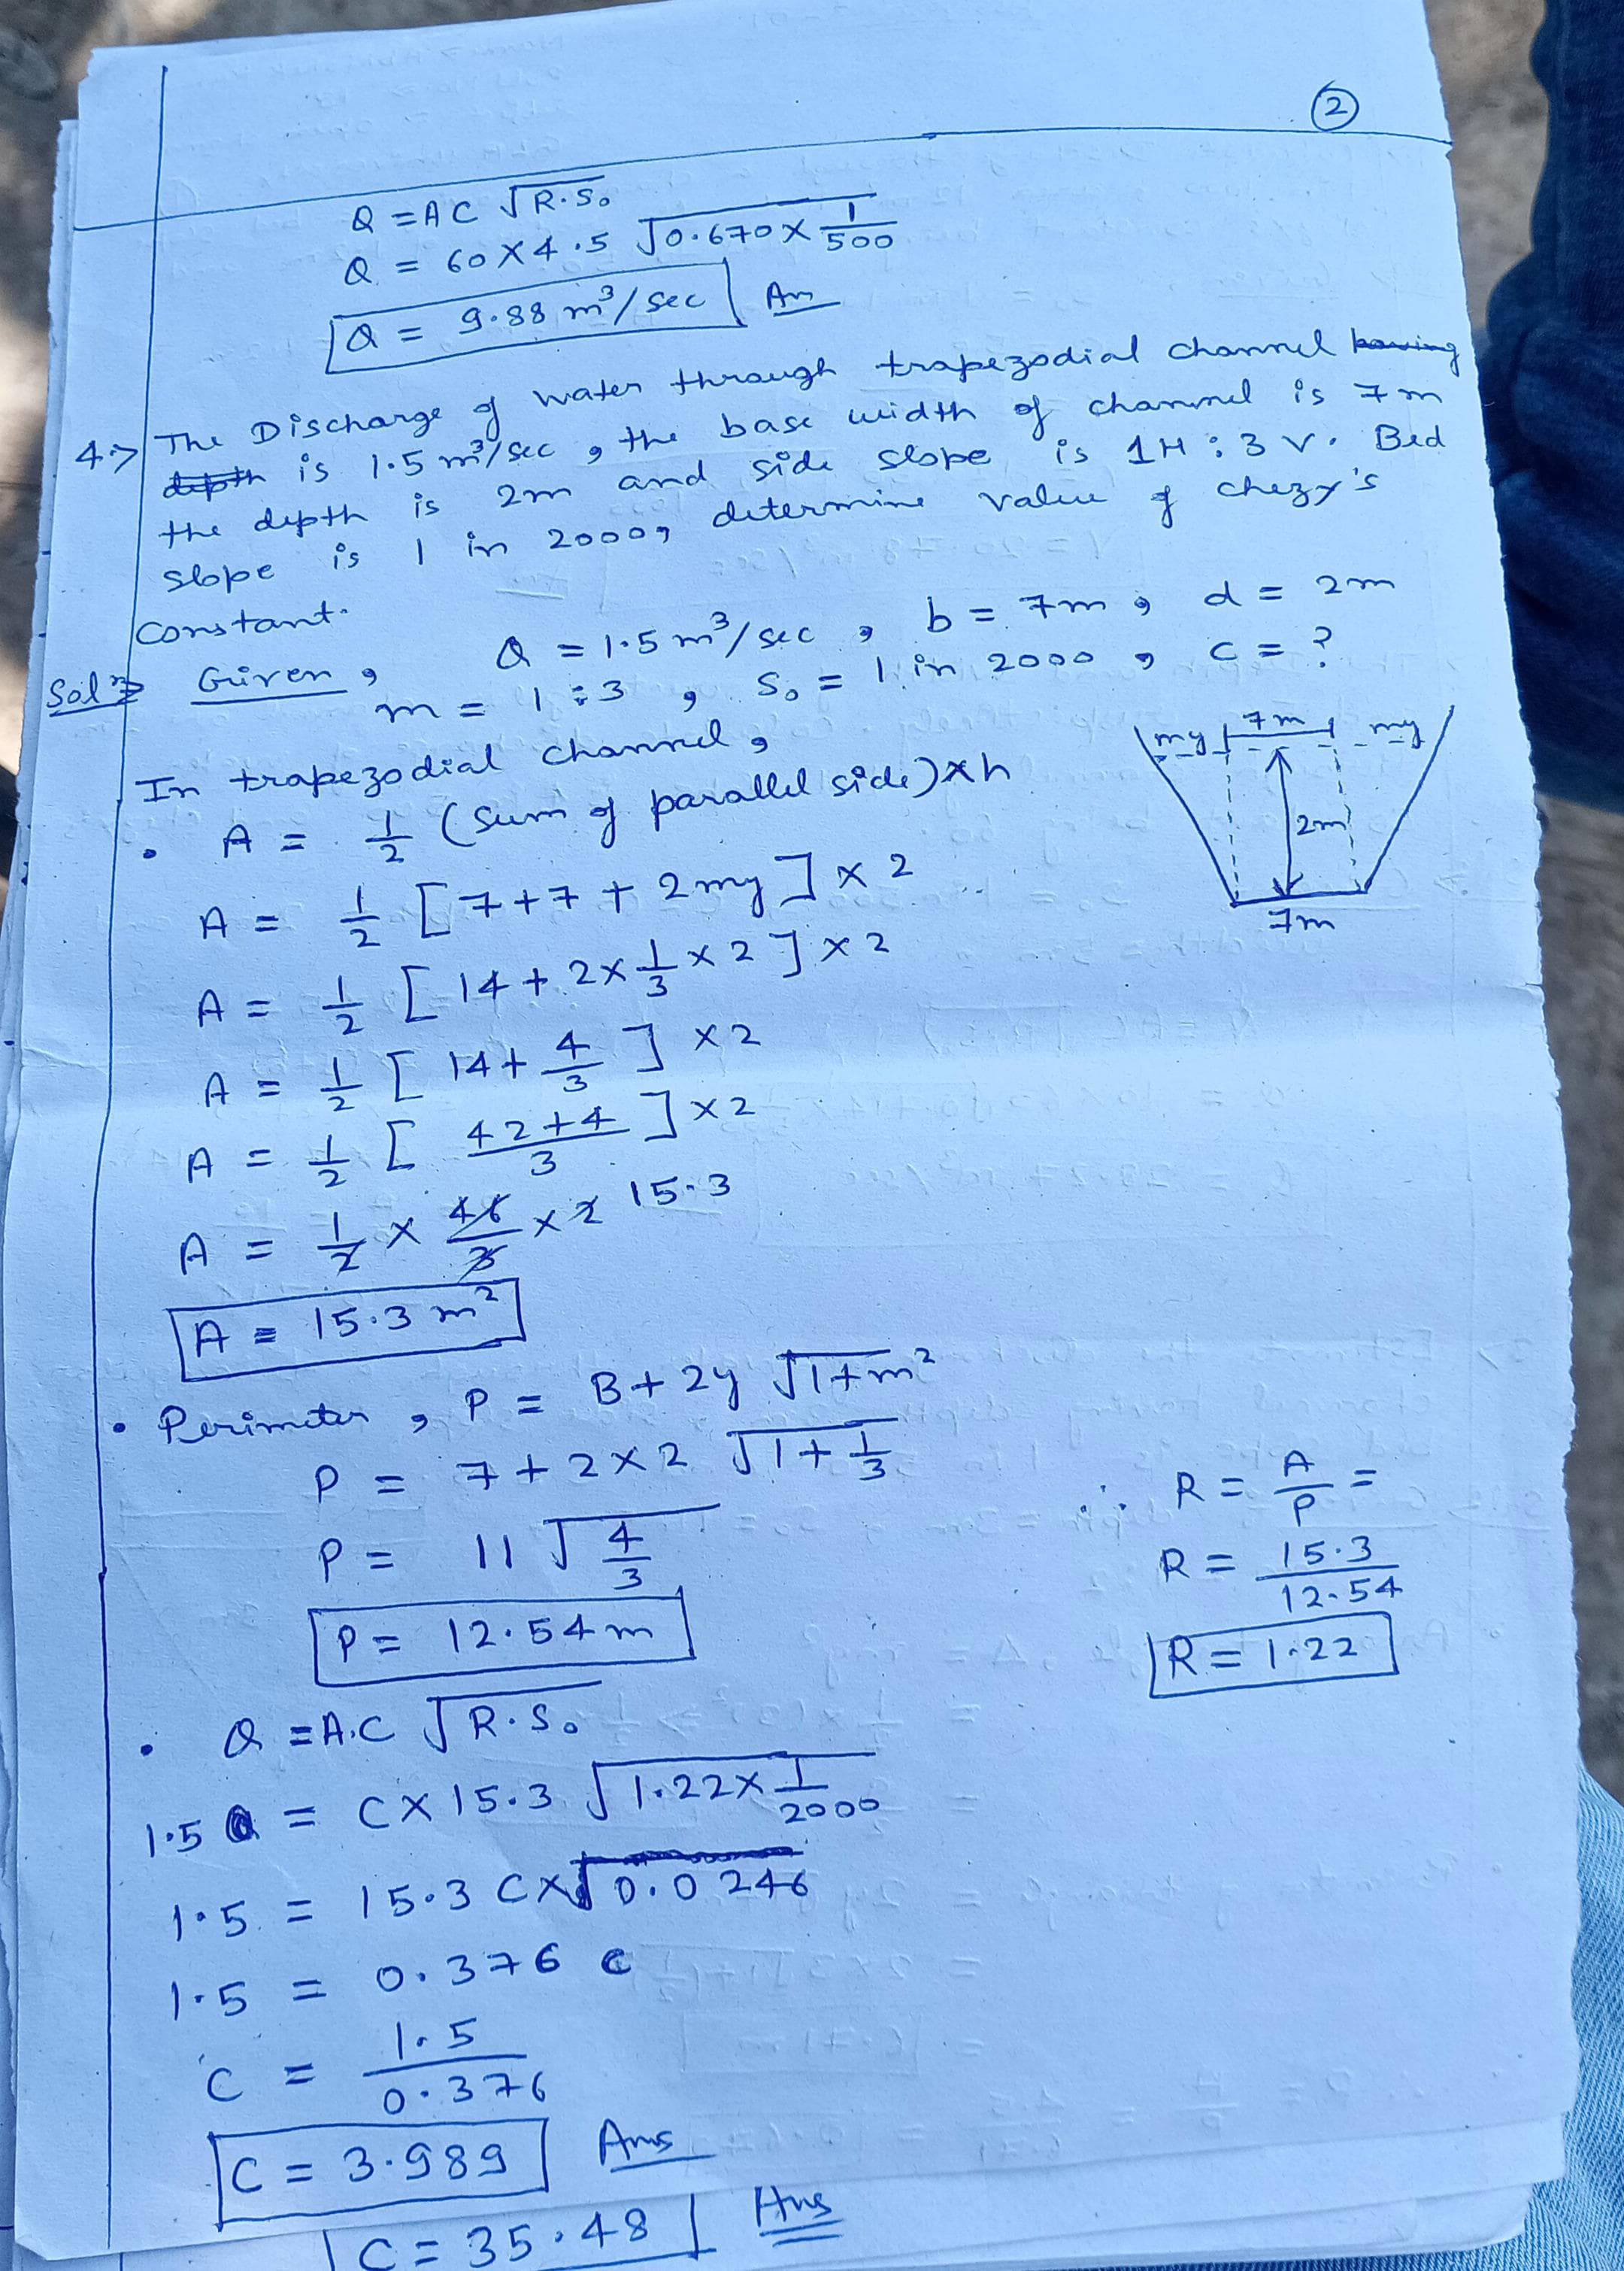 2
Q = AC √R.S₀
Q = 60 X 4.5 √0.670 X 1/500
Q = 9.88 m³/sec Ans
4.> The Discharge of water through trapezodial channel having
depth is 1.5 m³/sec, the base width of channel is 7m
the depth is 2m and side slope is 1H : 3V. Bed
slope is 1 in 2000, determine value of chezy's
Constant.
Solⁿ> Given, Q = 1.5 m³/sec, b = 7m, d = 2m
m = 1:3, S₀ = 1 in 2000, C = ?
In trapezodial channel,
my 7m my
2m
7m
• A = 1/2 (Sum of parallel side) x h
A = 1/2 [7+7 + 2my] x 2
A = 1/2 [14 + 2 x 1/3 x 2] x 2
A = 1/2 [14 + 4/3] x 2
A = 1/2 [42+4/3] x 2
A = 1/2 x 46/3 x 2 15.3
A = 15.3 m²
• Perimeter, P = B + 2y √1+m²
P = 7 + 2 x 2 √1+1/3
P = 11 √4/3
P = 12.54 m
∴ R = A/P =
R = 15.3/12.54
R = 1.22
• Q = A.C √R.S₀
1.5 = C X 15.3 √1.22 X 1/2000
1.5 = 15.3 C X √0.0246
1.5 = 0.376 C
C = 1.5/0.376
C = 3.989 Ans
C = 35.48 Ans